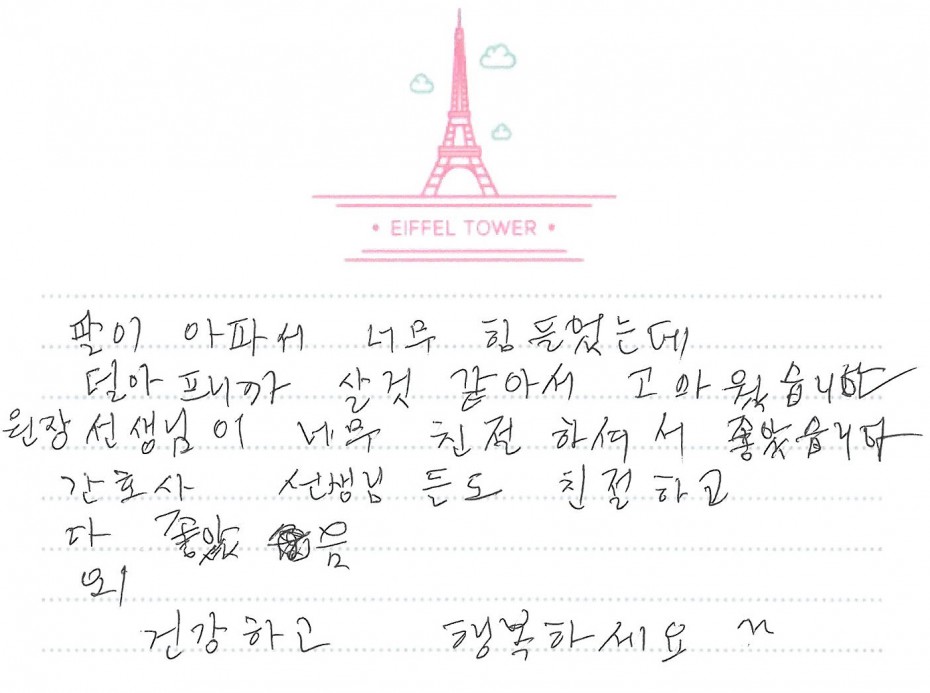 • EIFFEL TOWER •
팔이 아파서 너무 힘들었는데
덜아프니까 살것 같아서 고마웠습니다
원장선생님이 너무 친절 하셔서 좋았습니다
간호사 선생님 든도 친절하고
다 좋았 음
외
건강하고 행복하세요 ~